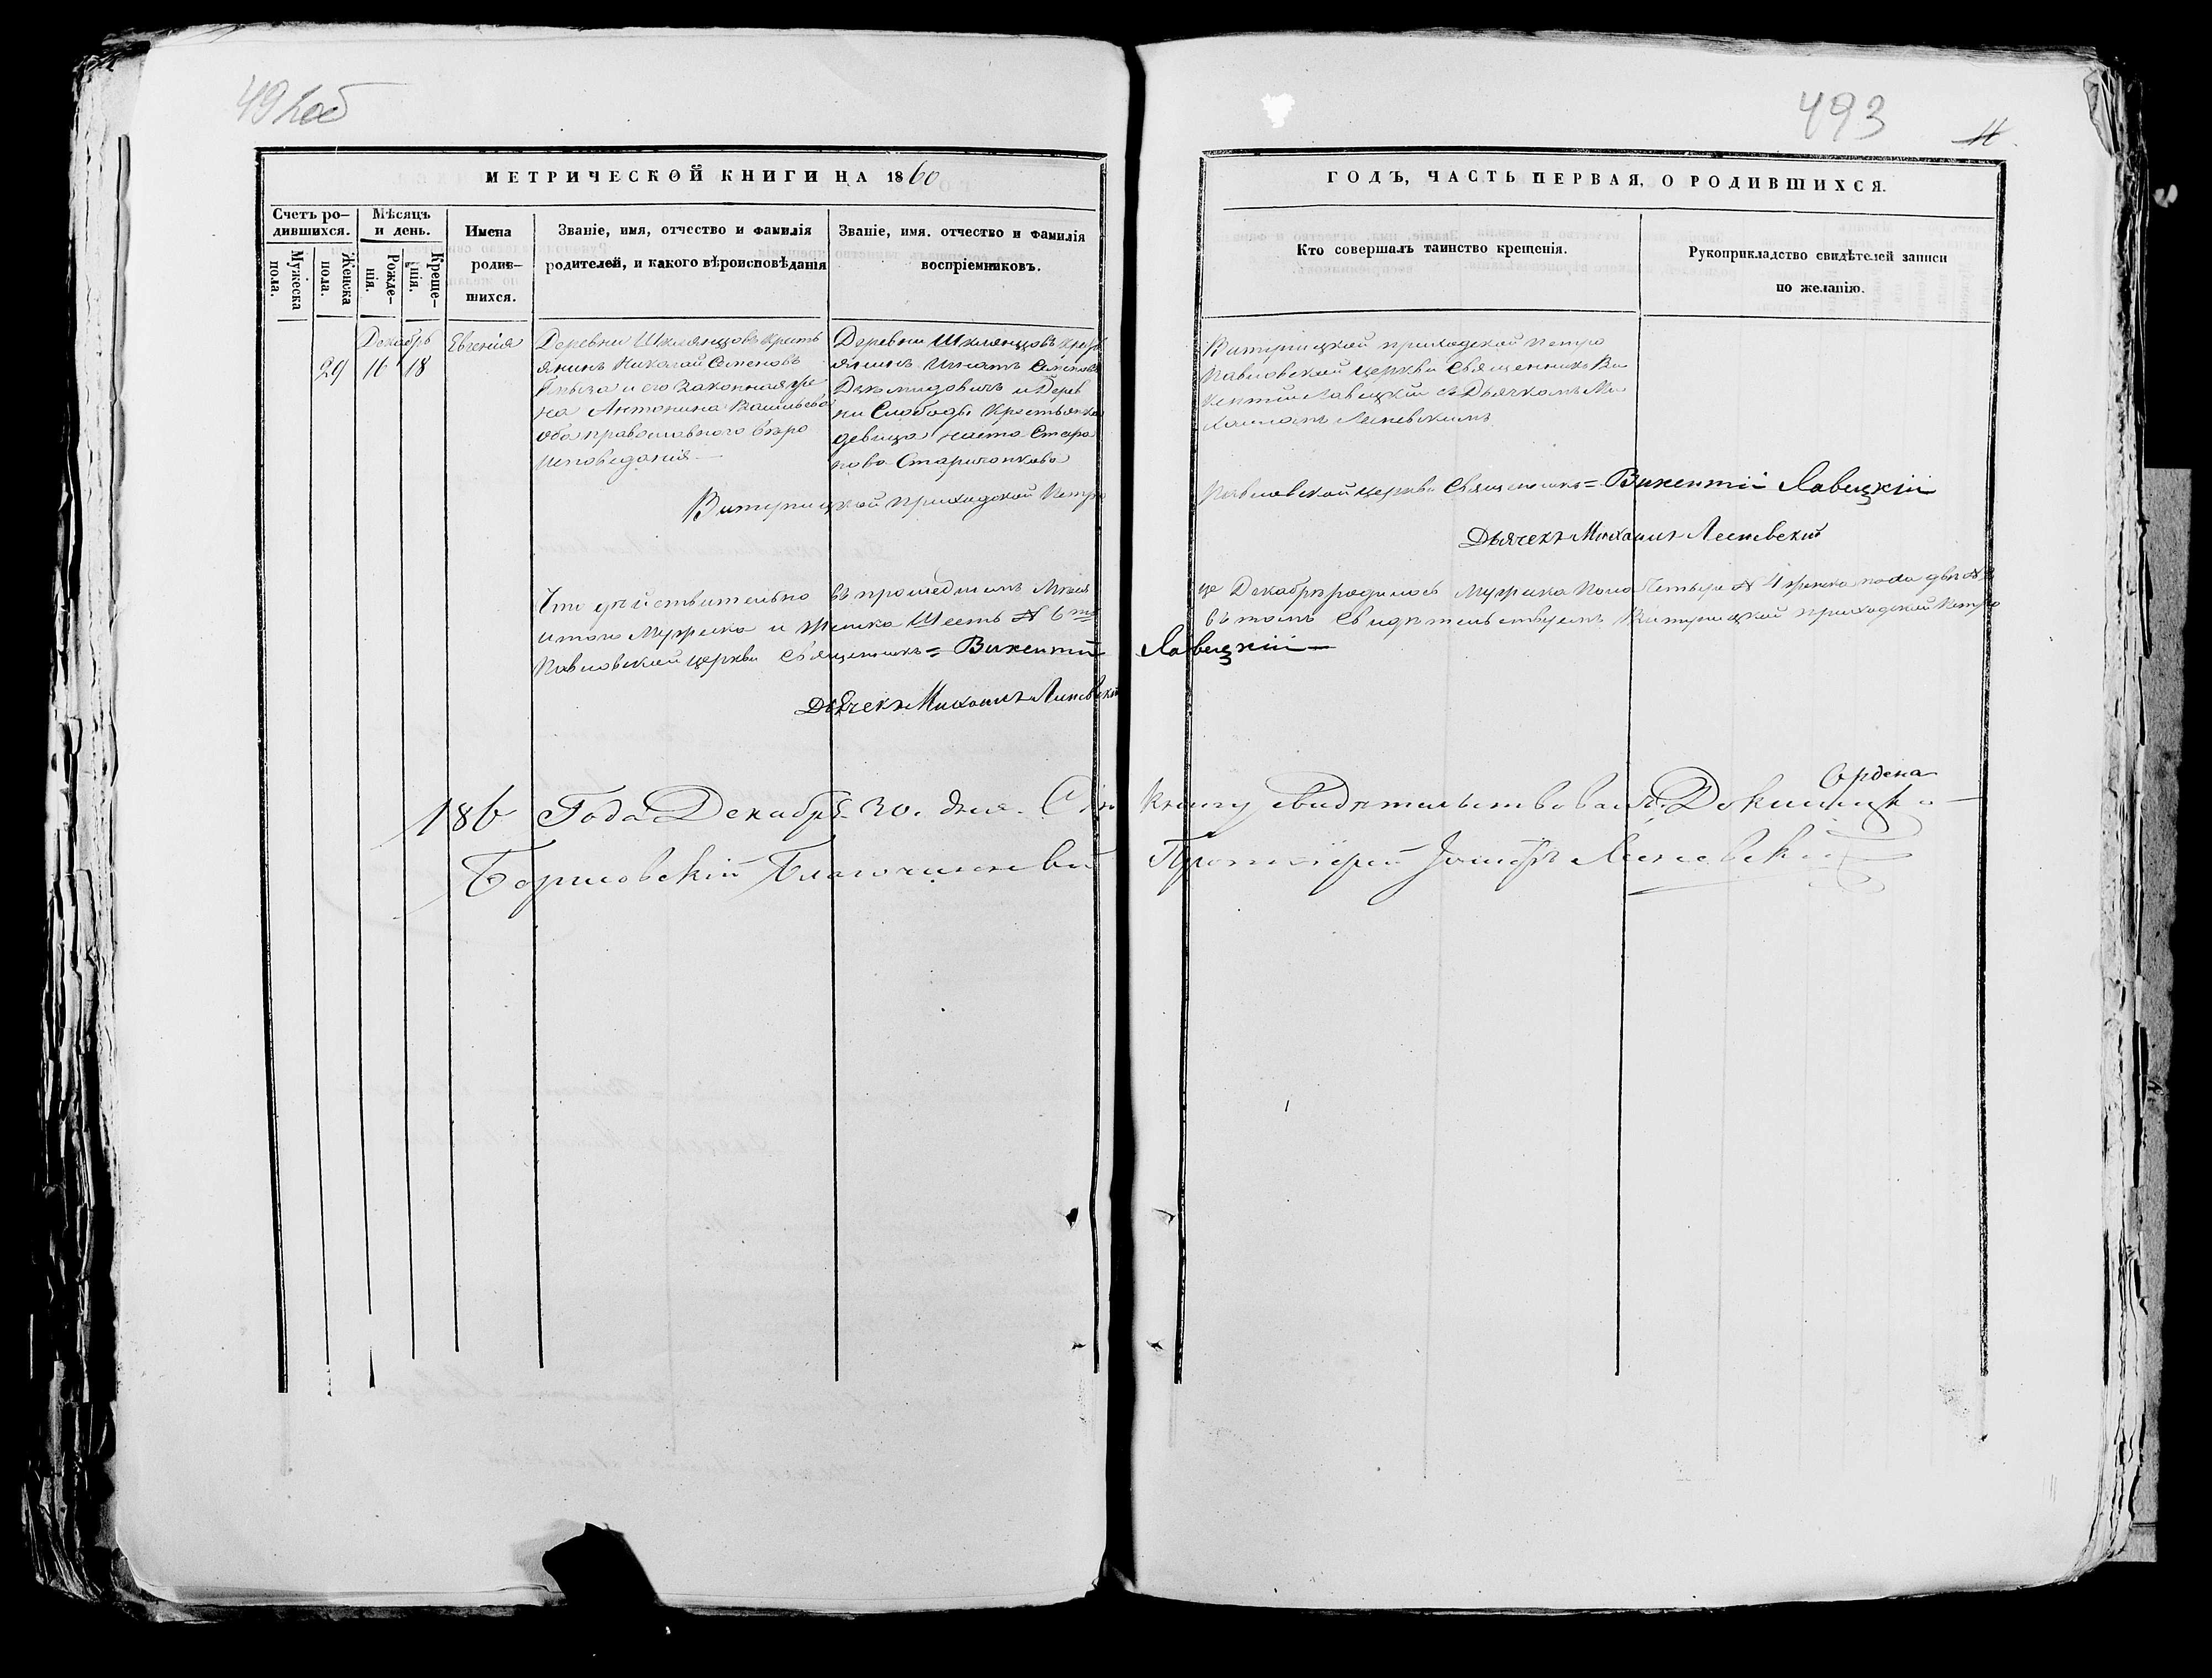 492об
493
МЕТРИЧЕСКОЙ КНИГИ НА 1860
ГОДЪ, ЧАСТЬ ПЕРВАЯ, О РОДИВШИХСЯ.
Счетъ ро-
дившихся.
Мужеска
пола.
Женска
пола.
Мѣсяцъ
и день.
Рожде-
нія.
Креще-
нія.
Имена
родив-
шихся.
Званіе, имя, отчество и фамилія
родителей, и какого вѣроисповѣданія
Званіе, имя. отчество и фамилія
воспріемниковъ.
Кто совершалъ таинство крещенія.
Рукоприкладство свидѣтелей записи
по желанію.
Декабрь
29 16 18
Евгенія
Деревни Шклянцовъ крестъ
янинъ Николай Семеновъ
и его законная же
на Антонина Васильева
оба православнаго вѣро
исповеданія
Деревни Шклянцовъ крест
янинъ Игнатъ Семеновъ
и Дерев
ни Слободы крестьянка
девица
Витуницкой приходской Петро
Павловской церкви Священникъ Ви
кентій Лавецкій съ Дьячкомъ Ми
хаиломъ Лисневскимъ
Витуницкой приходской Петро
Павловской церкви Священникъ = Викентій Лавецкій
Дьячекъ Михаилъ Лисневскій
Что дѣйствительно въ прошедшемъ Меся
це Декабрѣ родилось Мужеска пола четыре № 4 женска пола две №
итого Мужеска и женска Шесть № 6
въ томъ Свидѣтельствуемъ Витуницкой приходской Петро
Павловской церкви Священникъ = Викентій Лавецкій
Дьячекъ Михаилъ Лисневскій
186 Года Декабря 30. дня. Сію Книгу свидѣтельствовалъ Докшицко
Борисовскій Благочинный Протоіерей Іосифъ Лисневскій